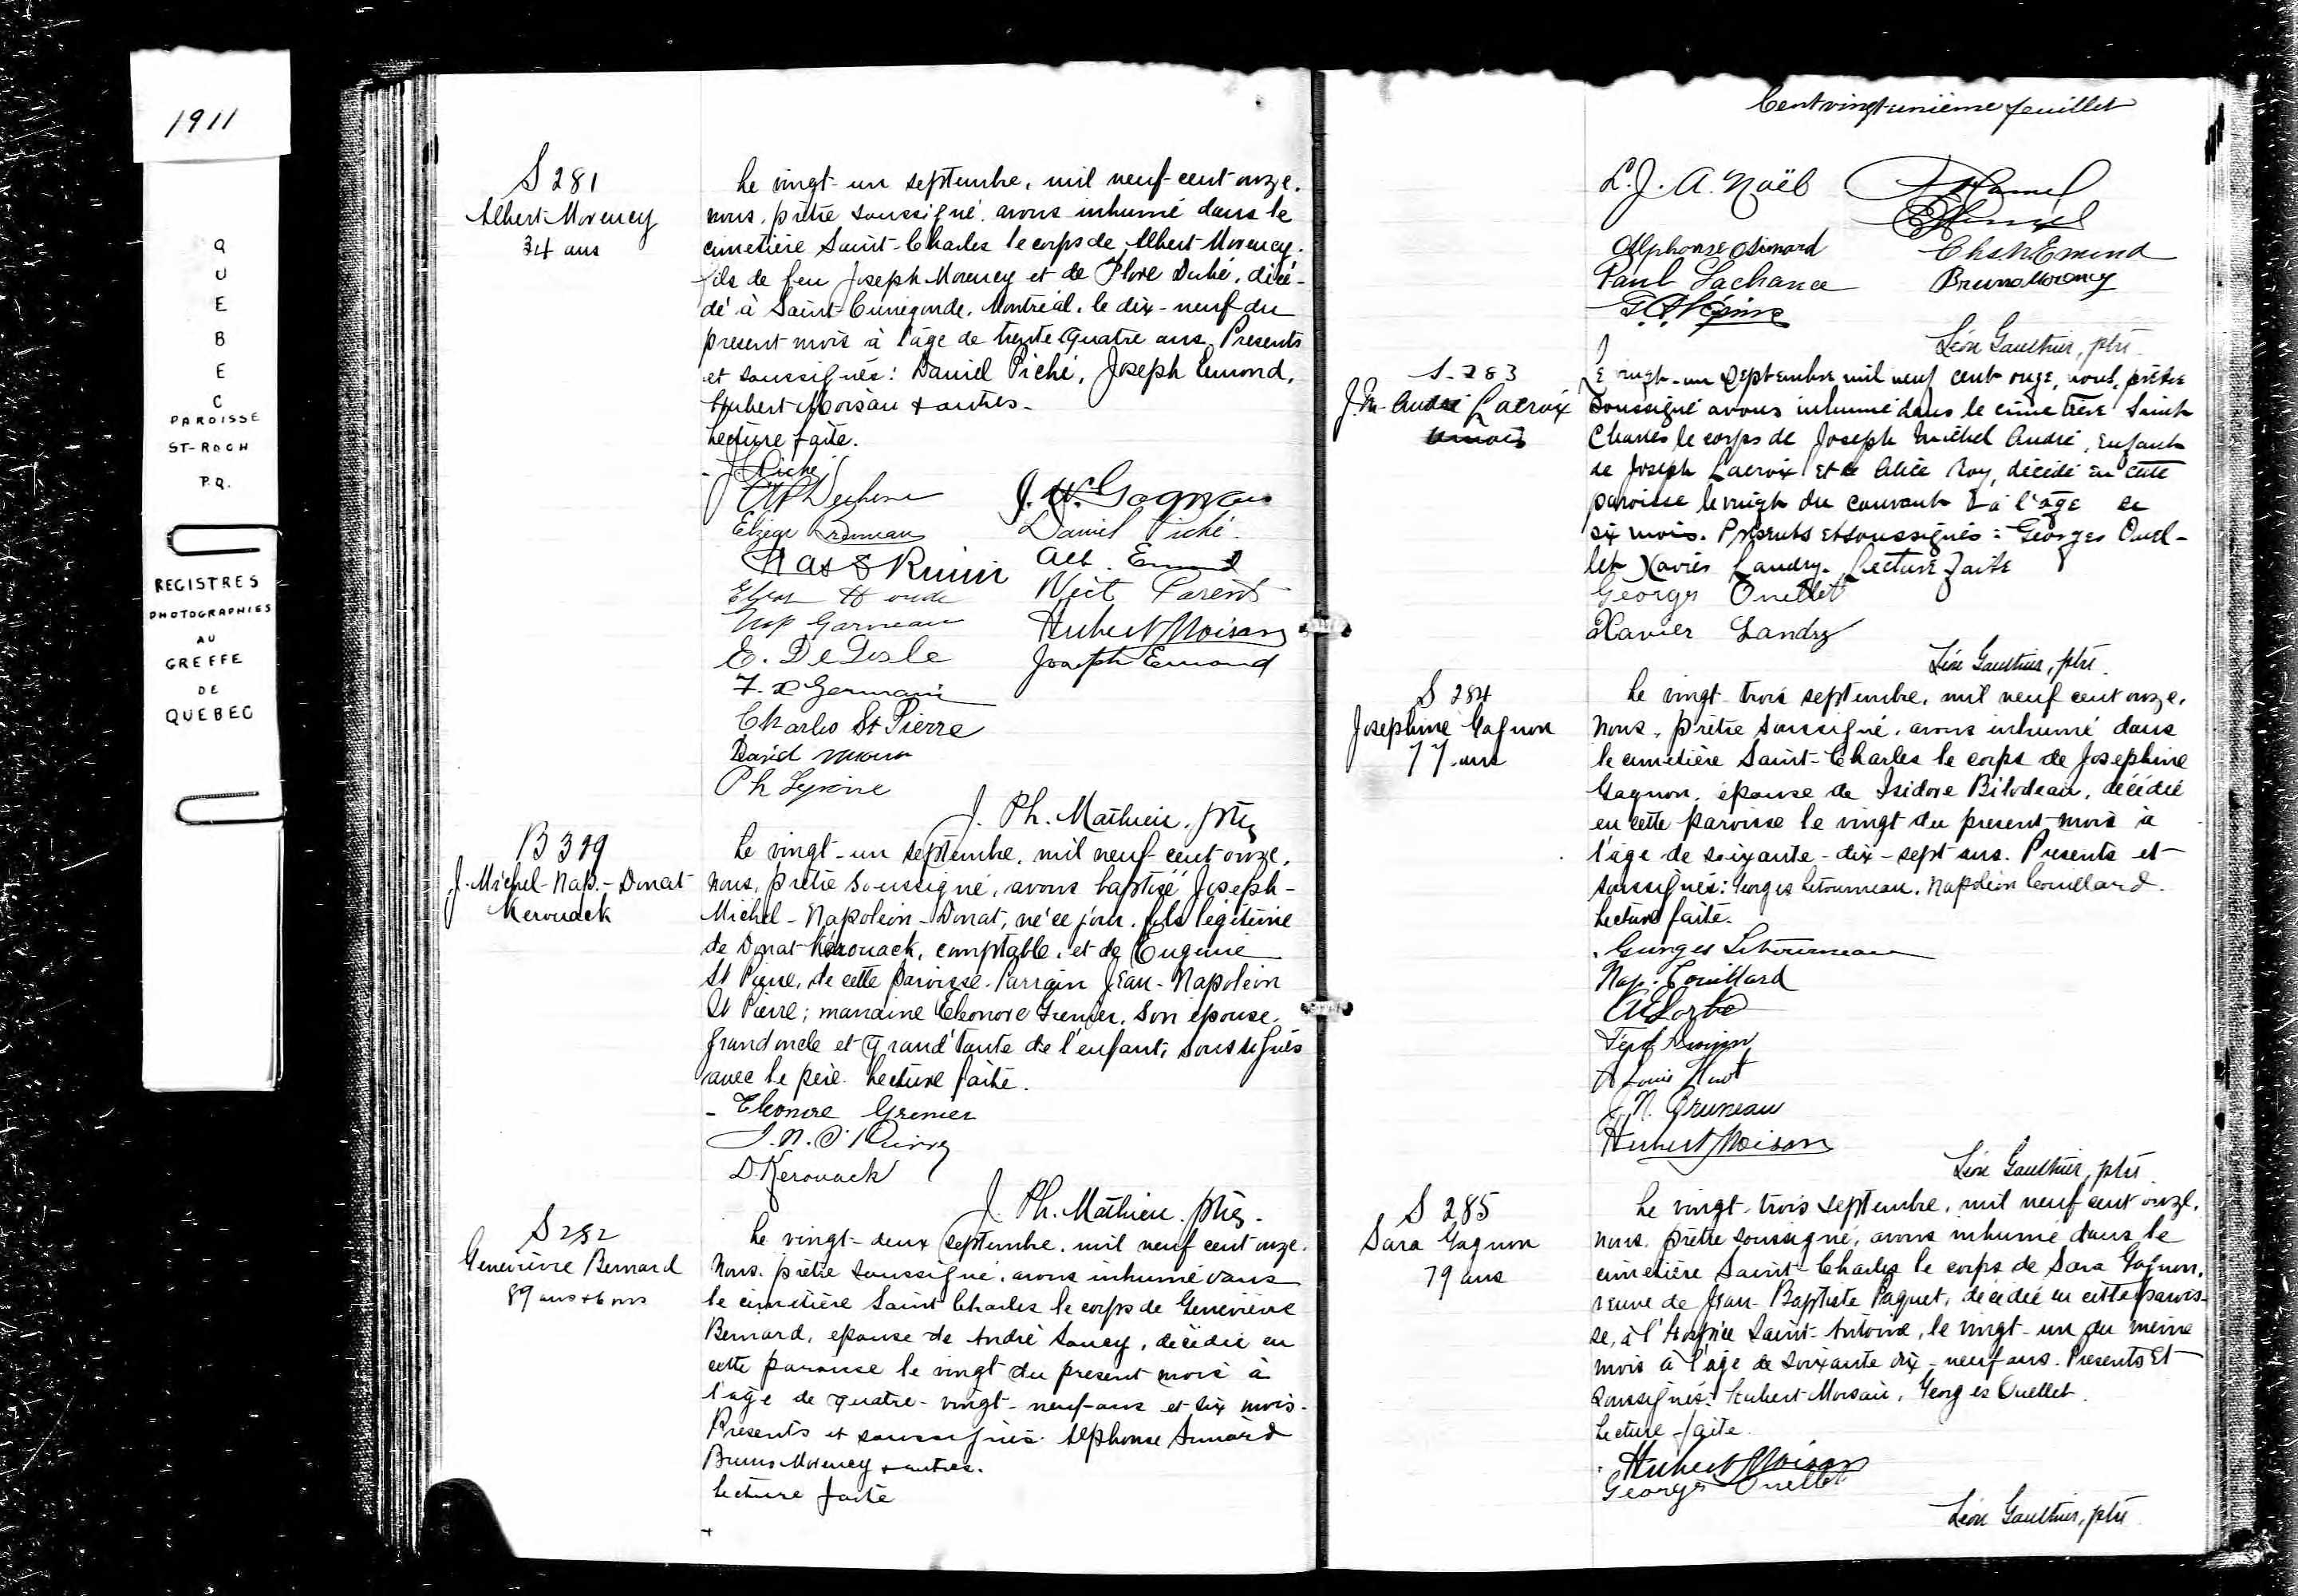 1911
QUEBEC
PAROISSE
ST-ROCH
P.Q.
REGISTRES
PHOTOGRAPHIES
AU
GREFFE
DE
QUEBEC
S 281
Albert Morency
34 ans
Le vingt-un septembre, mil neuf cent onze,
nous, prêtre soussigné, avons inhumé dans le
cimetière Saint-Charles le corps de Albert Morency,
fils de feu Joseph Morency et de Flore Dubé, décé-
dé à Saint-Cunégonde, Montréal, le dix-neuf du
présent mois à l'âge de trente quatre ans. Présents
et soussignés: Daniel Piché, Joseph Emond,
Hubert Moisan & autres.
Lecture faite.
J. Piché
J. W. Gagnon
Daniel Piché
Alb. Emond
Vict Parent
Nap Garneau
Hubert Moisan
E. DeLisle
Joseph Emond
F. X Germain
Charles St Pierre
David
Ph Lepine
J. Ph. Mathieu, ptre
B 399
J. Michel-Nap.-Donat
Kerouack
Le vingt-un septembre, mil neuf cent onze,
nous, prêtre soussigné, avons baptisé Joseph-
Michel-Napoléon-Donat, né ce jour, fils légitime
de Donat Kérouack, comptable, et de Eugénie
St Pierre, de cette paroisse. Parrain Jean-Napoléon
St Pierre; marraine Eléonore Grenier, son épouse,
grand oncle et grand'tante de l'enfant, soussignés
avec le père. Lecture faite.
Eléonore Grenier
J. N. St Pierre
D. Kerouack
J. Ph. Mathieu, ptre
S 282
Geneviève Bernard
89 ans & 6 ms
Le vingt-deux septembre, mil neuf cent onze,
nous, prêtre soussigné, avons inhumé dans
le cimetière Saint Charles le corps de Geneviève
Bernard, épouse de André Soucy, décédée en
cette paroisse le vingt du présent mois à
l'âge de quatre-vingt-neuf ans et six mois.
Présents et soussignés Alphonse Simard
Bruno Morency & autres.
Lecture faite
Cent vingt unième feuillet
L. J. A. Noël
Alphonse Simard
Chs N Emond
Paul Lachance
Bruno Morency
Léon Gauthier, ptre
S. 283
J. M. André Lacroix
6 mois
Le vingt-un septembre mil neuf cent onze, nous, prêtre
soussigné avons inhumé dans le cimetière Saint
Charles le corps de Joseph Michel André, enfant
de Joseph Lacroix et de Alice Roy, décédé en cette
paroisse le vingt du courant à l'âge de
six mois. Présents et soussignés: Georges Ouel-
let Xavier Landry. Lecture faite
Georges Ouellet
Xavier Landry
Léon Gauthier, ptre
S 284
Josephine Gagnon
77 ans
Le vingt-trois septembre, mil neuf cent onze,
nous, prêtre soussigné, avons inhumé dans
le cimetière Saint-Charles le corps de Josephine
Gagnon, épouse de Isidore Bilodeau, décédée
en cette paroisse le vingt du présent mois à
l'âge de soixante-dix-sept ans. Présents et
soussignés: Georges Letourneau, Napoléon Couillard.
Lecture faite.
Georges Letourneau
Nap. Couillard
Louis Huot
J. N. Bruneau
Hubert Moisan
Léon Gauthier, ptre
S 285
Sara Gagnon
79 ans
Le vingt-trois septembre, mil neuf cent onze,
nous, prêtre soussigné, avons inhumé dans le
cimetière Saint-Charles le corps de Sara Gagnon,
veuve de Jean-Baptiste Paquet, décédée en cette parois-
se, à l'Hospice Saint-Antoine, le vingt-un du même
mois à l'âge de soixante dix-neuf ans. Présents et
soussignés: Hubert Moisan, Georges Ouellet.
Lecture faite
Hubert Moisan
Georges Ouellet
Léon Gauthier, ptre